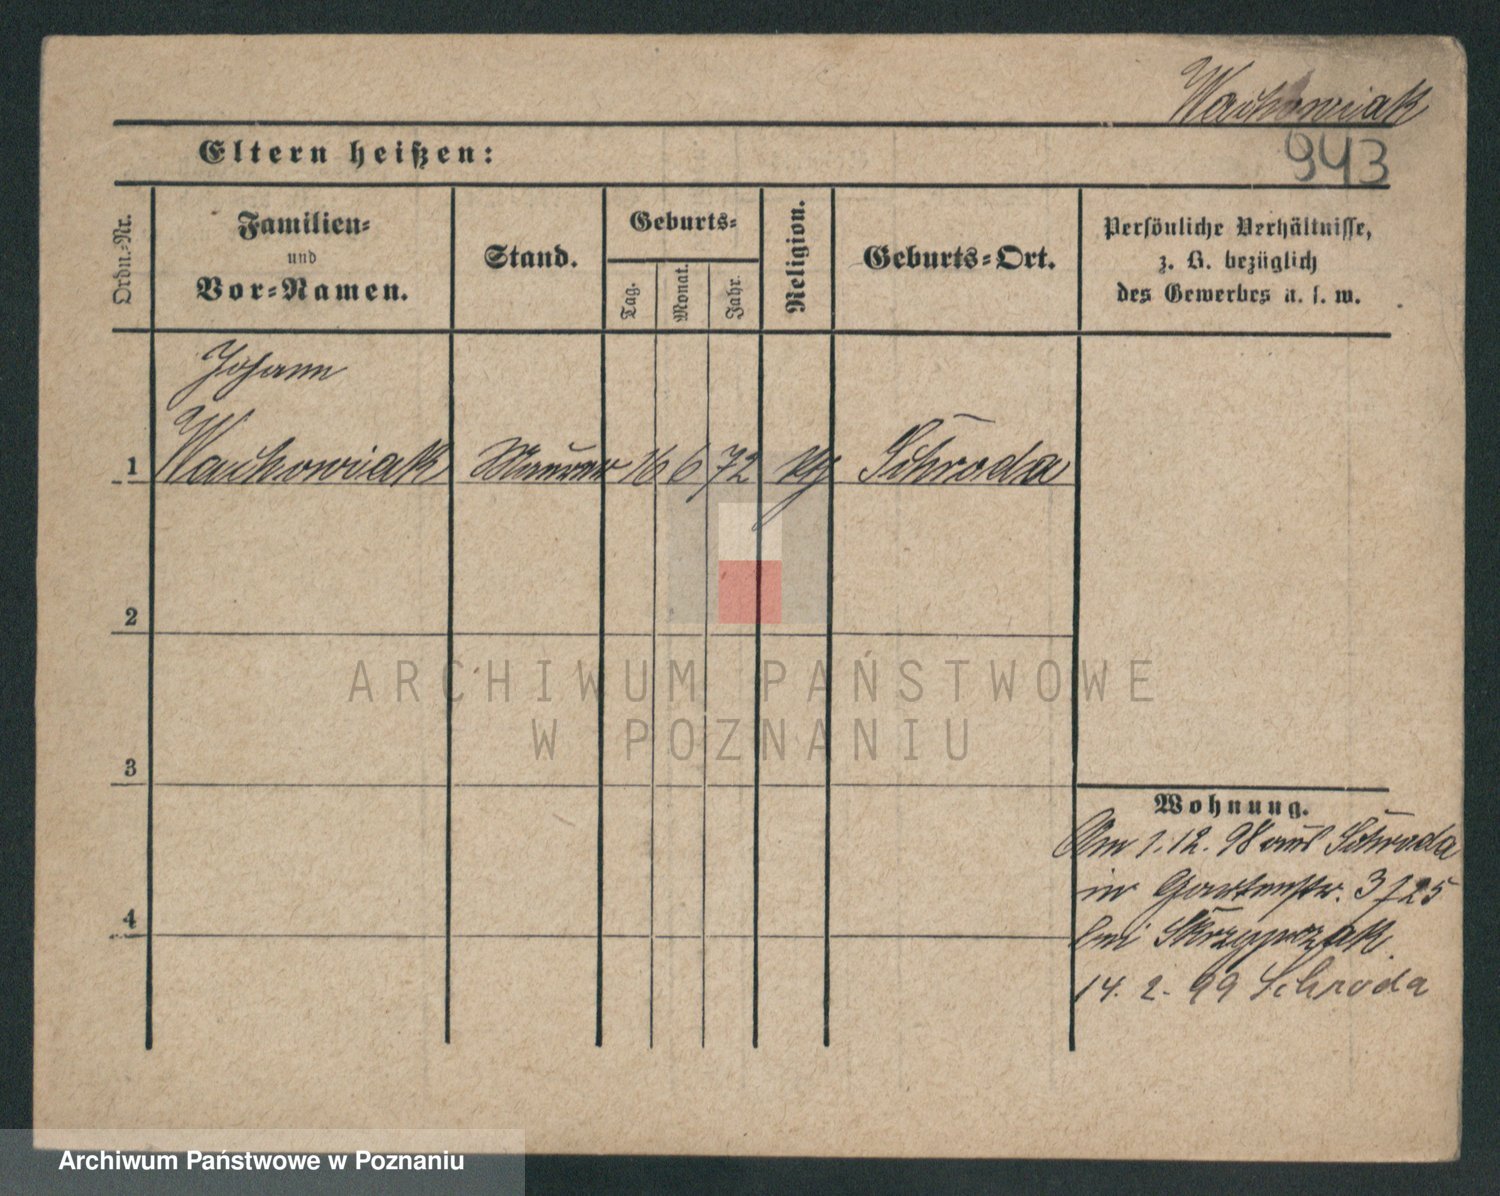 Wachowiak
943
Eltern heißen:
Ordn.-Nr.
Familien-
und
Vor-Namen.
Stand.
Geburts-
Tag.
Monat.
Jahr.
Religion.
Geburts-Ort.
Persönliche Verhältnisse,
z. B. bezüglich
des Gewerbes u. s. w.
Johann
1 Wachowiak Maurer 16 6 72 Schroda
2
3
4
Wohnung.
Am 1.12.98 aus Schroda
in Gartenstr. 3
bei Skrzypczak.
14. 2. 99 Schroda
ARCHIWUM PAŃSTWOWE
W POZNANIU
Archiwum Państwowe w Poznaniu